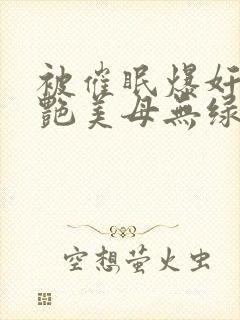 被催眠爆奸
艷美母無绿
空想萤火虫